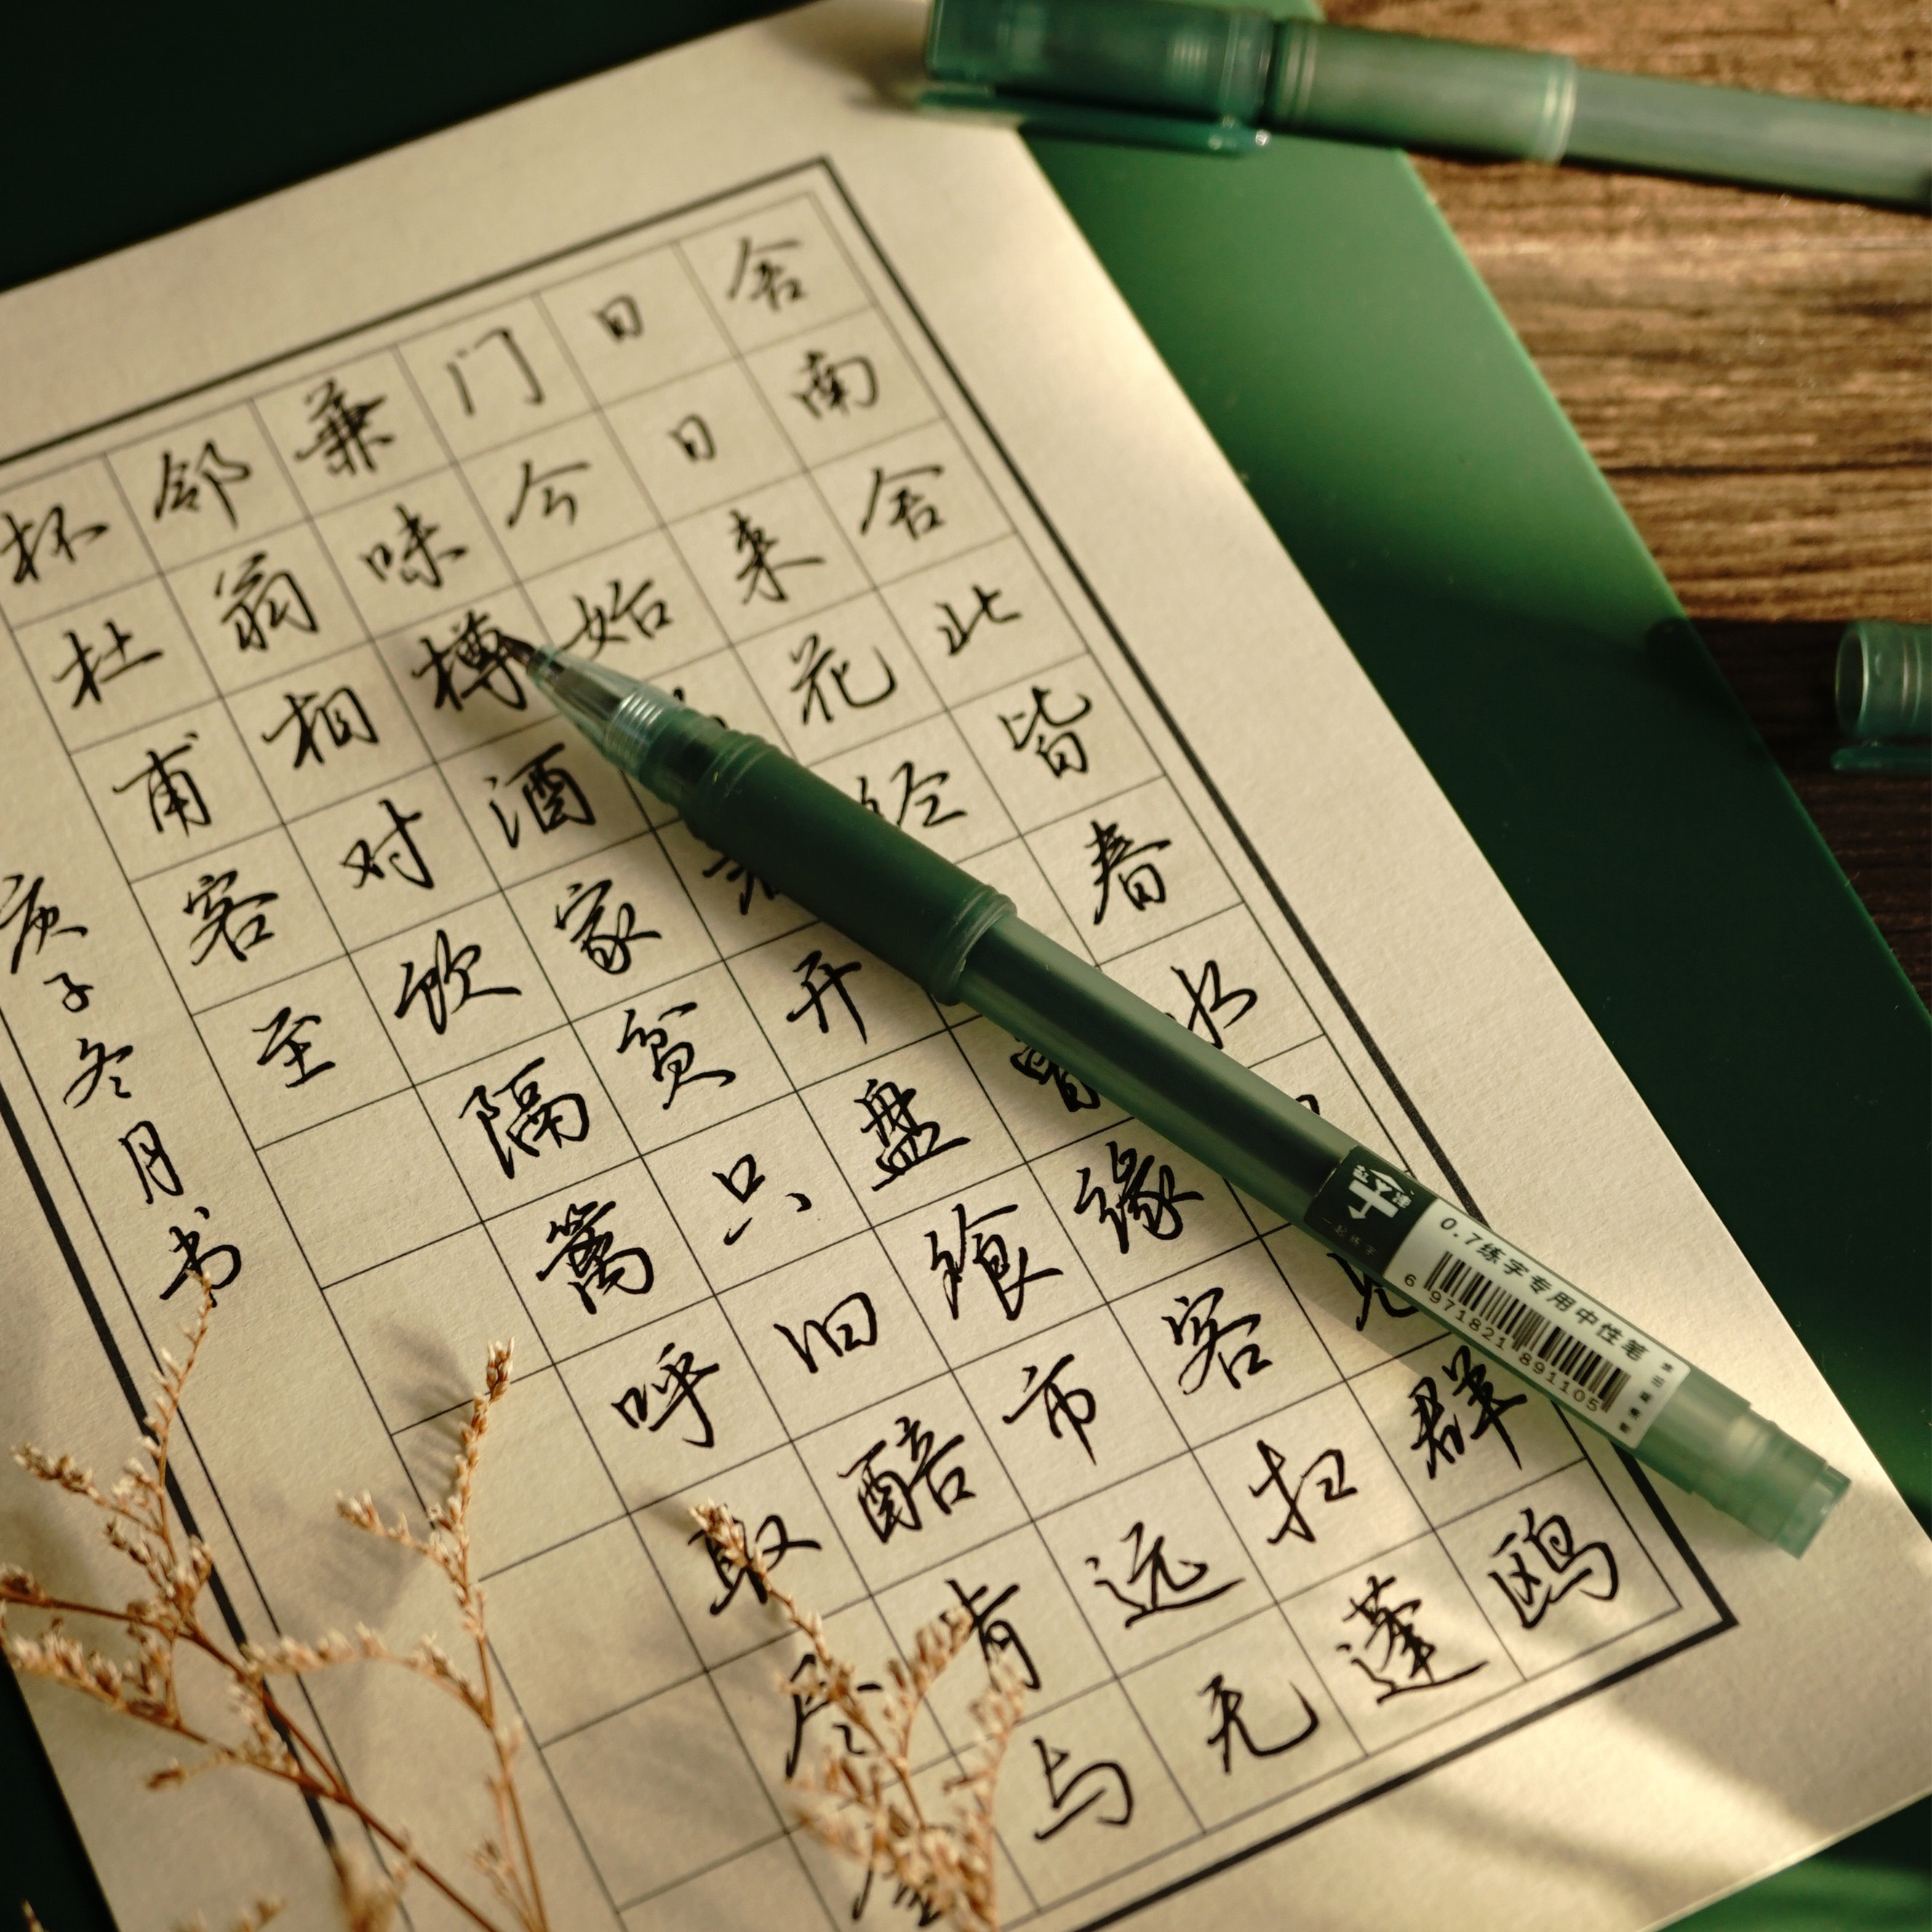 舍南舍北皆春水见群鸥
日日来花径曾缘客扫蓬
门今始君开盘飧市远无
兼味樽酒家贫只旧醅肯与
邻翁相对饮隔篱呼取尽余
杯杜甫客至
庚子冬月书
一起练字
0.7练字专用中性笔
6 971821 891105